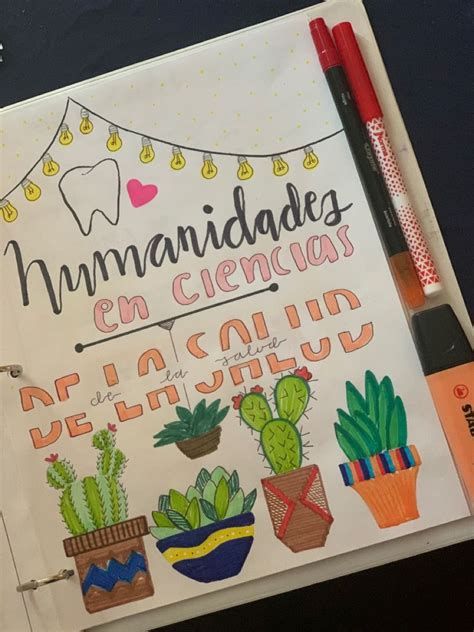 humanidades
en ciencias
DE LA SALUD
de la salud